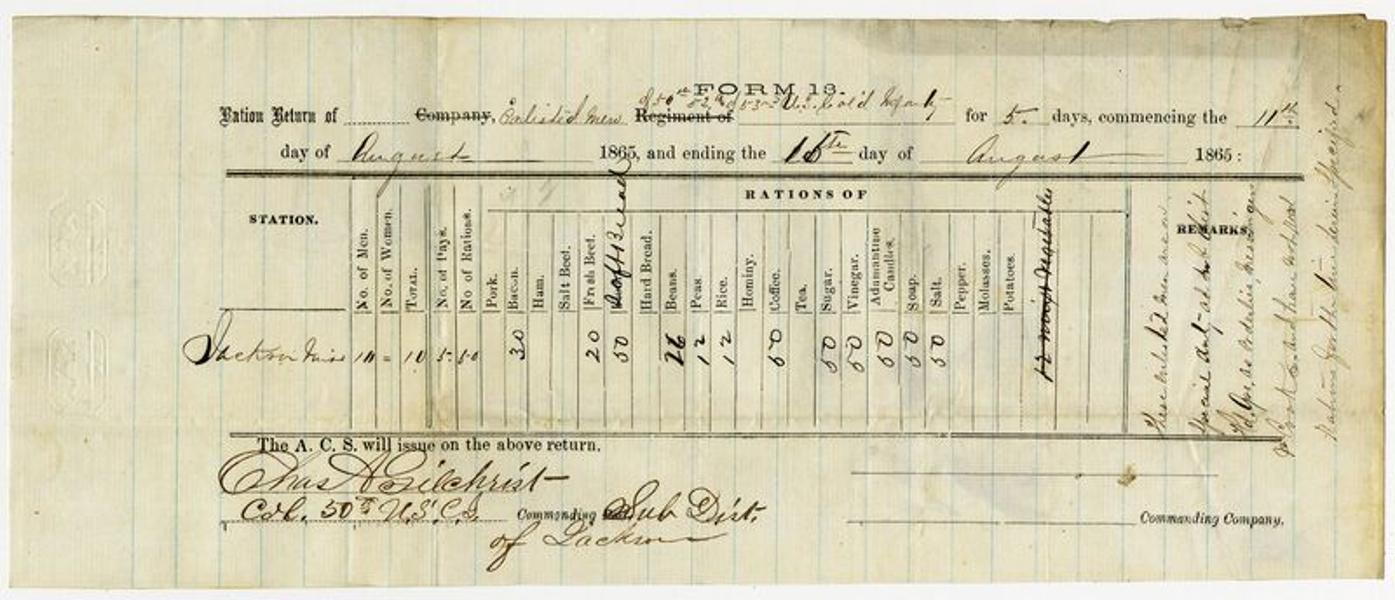 FORM 13.
of 50th 52nd & 53rd U.S. Col'd Infanty
Ration Return of Company, Enlisted Men Regiment of for 5 days, commencing the 11th
day of August 1865, and ending the 15th day of August 1865:
STATION.
RATIONS OF
REMARKS.
No. of Men.
No. of Women.
TOTAL.
No. of Days.
No of Rations.
Pork.
Bacon.
Ham.
Salt Beef.
Fresh Beef.
Soft Bread
Hard Bread.
Beans.
Peas
Rice.
Hominy.
Coffee.
Tea.
Sugar.
Vinegar.
Adamantine Candles.
Soap.
Salt.
Pepper.
Molasses.
Potatoes.
12 mixed vegetables
Jackson Miss 10 = 10 5 50 30 20 50 26 12 12 50 50 50 50 50 50
These enlisted men are on
special duty at Sub Dist
Hd. Qrs. as orderlies, messengers
& and have not drawn
Rations for the time herein specified.
The A. C. S. will issue on the above return.
Chas A Gilchrist
Col. 50th U.S.C.I. Commanding Sub Dist.
of Jackson
Commanding Company.